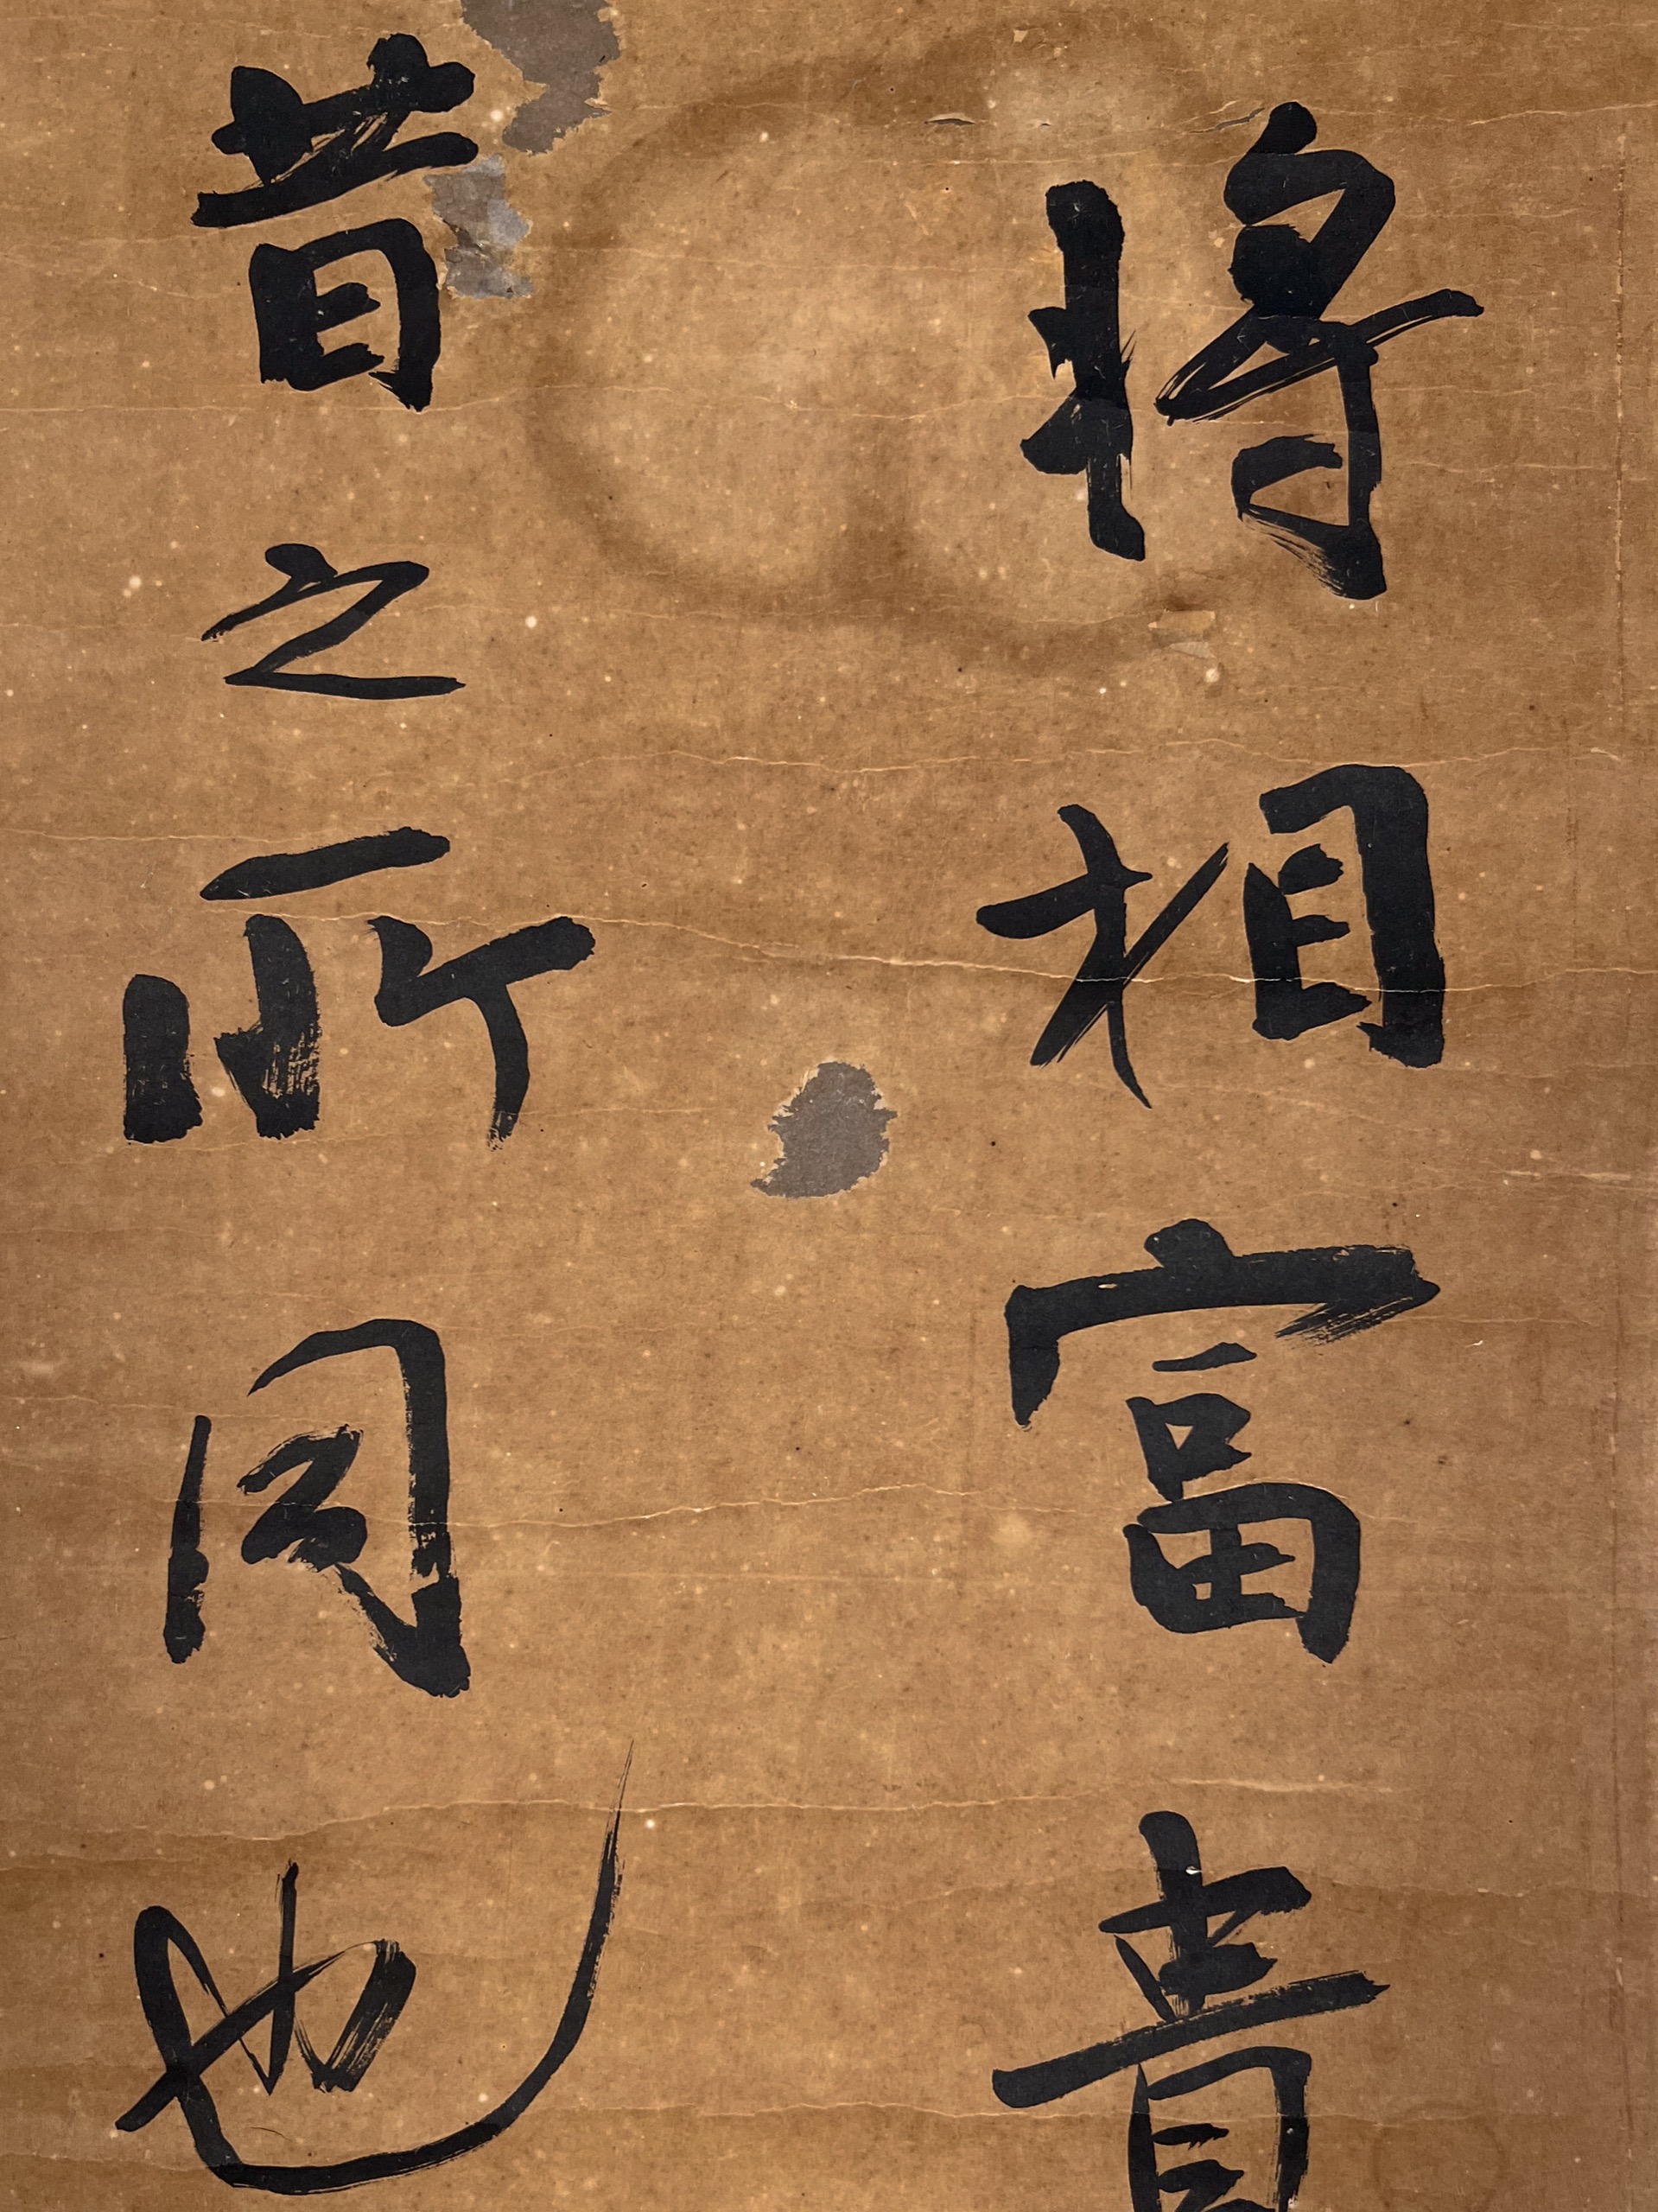 將相富貴
昔之所同也